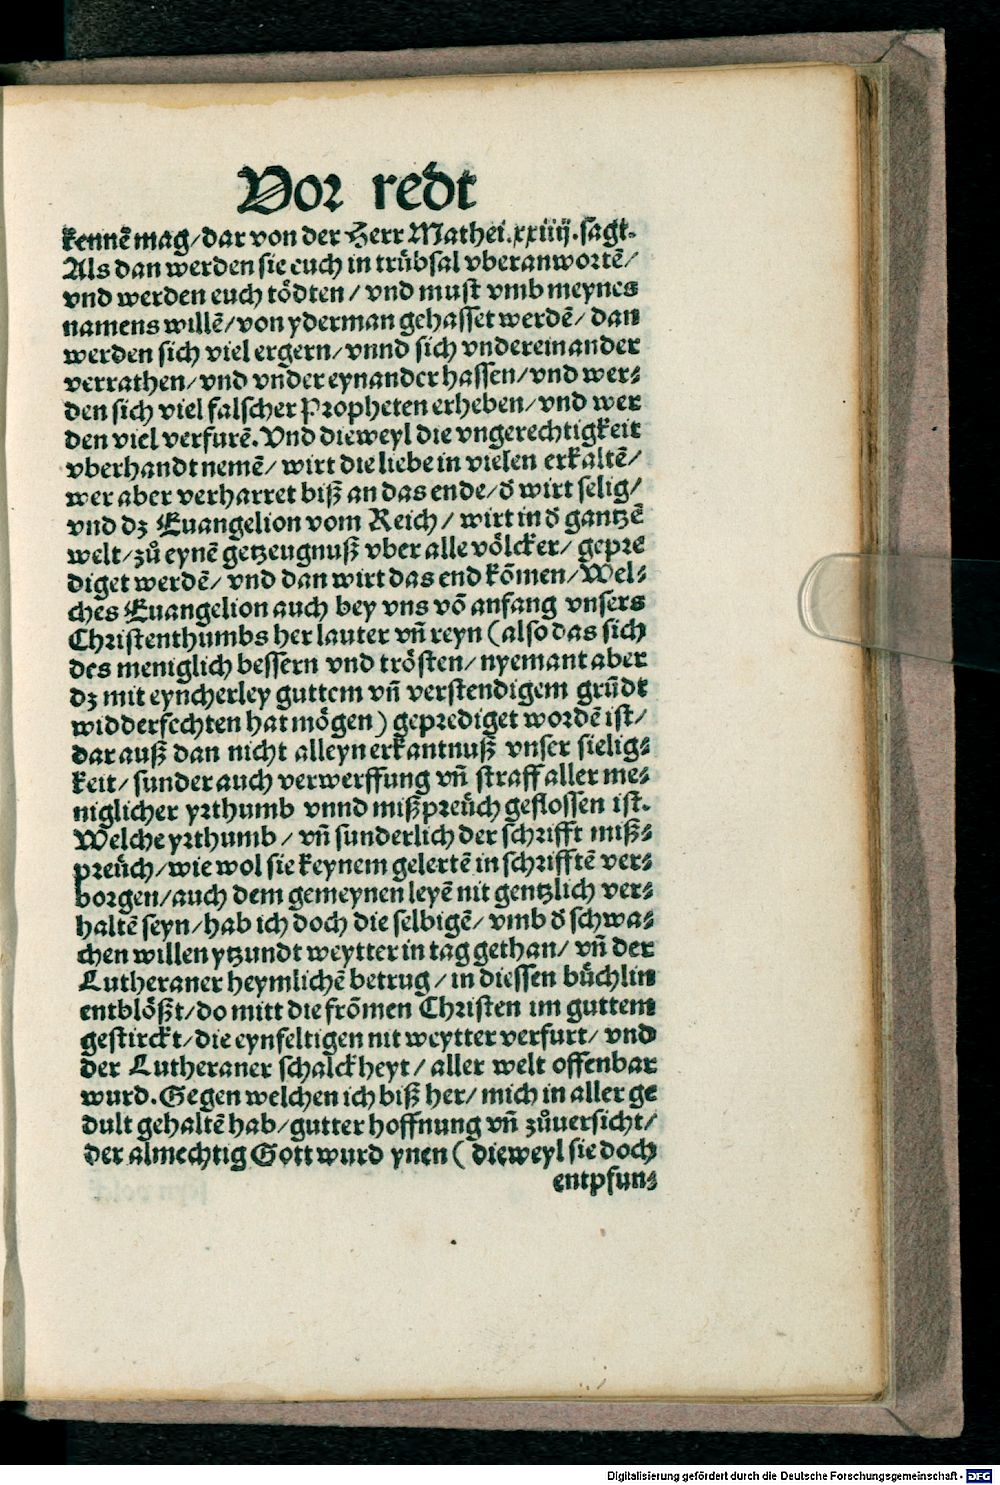 Vor redt
kennē mag/dar von der Herr Mathei.xxiiij.sagt.
Als dan werden sie euch in trübsal vberanwortē/
vnd werden euch tödten/ vnd must vmb meynes
namens willē/von yderman gehasset werdē/ dan
werden sich viel ergern/vnnd sich vndereinander
verrathen/vnd vnder eynander hassen/vnd wer⸗
den sich viel falscher Propheten erheben/vnd wer
den viel verfurē. Vnd dieweyl die vngerechtigkeit
vberhandt nemē/ wirt die liebe in vielen erkaltē/
wer aber verharret biß an das ende/ď wirt selig/
vnd dz Euangelion vom Reich/ wirt in ď gantzē
welt/zů eynē getzeugnuß vber alle völcker/ gepre
diget werdē/ vnd dan wirt das end kōmen/Wel⸗
ches Euangelion auch bey vns vō anfang vnsers
Christenthumbs her lauter vn̄ reyn (also das sich
des meniglich bessern vnd trösten/ nyemant aber
dz mit eyncherley guttem vn̄ verstendigem grūdt
widderfechten hat mögen) geprediget wordē ist/
dar auß dan nicht alleyn erkantnuß vnser sielig⸗
keit/ sunder auch verwerffung vn̄ straff aller me⸗
niglicher yrthumb vnnd mißpreůch geflossen ist.
Welche yrthumb/ vn̄ sunderlich der schrifft miß⸗
preůch/wie wol sie keynem gelertē in schrifftē ver⸗
borgen/auch dem gemeynen leyē nit gentzlich ver⸗
haltē seyn/hab ich doch die selbigē/ vmb ď schwa⸗
chen willen ytzundt weytter in tag gethan/ vn̄ der
Lutheraner heymlichē betrug/ in diessen bůchlin
entblößt/do mitt die frōmen Christen im guttem
gestirckt/die eynfeltigen nit weytter verfurt/ vnd
der Lutheraner schalckheyt/ aller welt offenbar
wurd. Gegen welchen ich biß her/ mich in aller ge
dult gehaltē hab/gutter hoffnung vn̄ zůuersicht/
der almechtig Gott wurd ynen (dieweyl sie doch
entpfun⸗
Digitalisierung gefördert durch die Deutsche Forschungsgemeinschaft - DFG